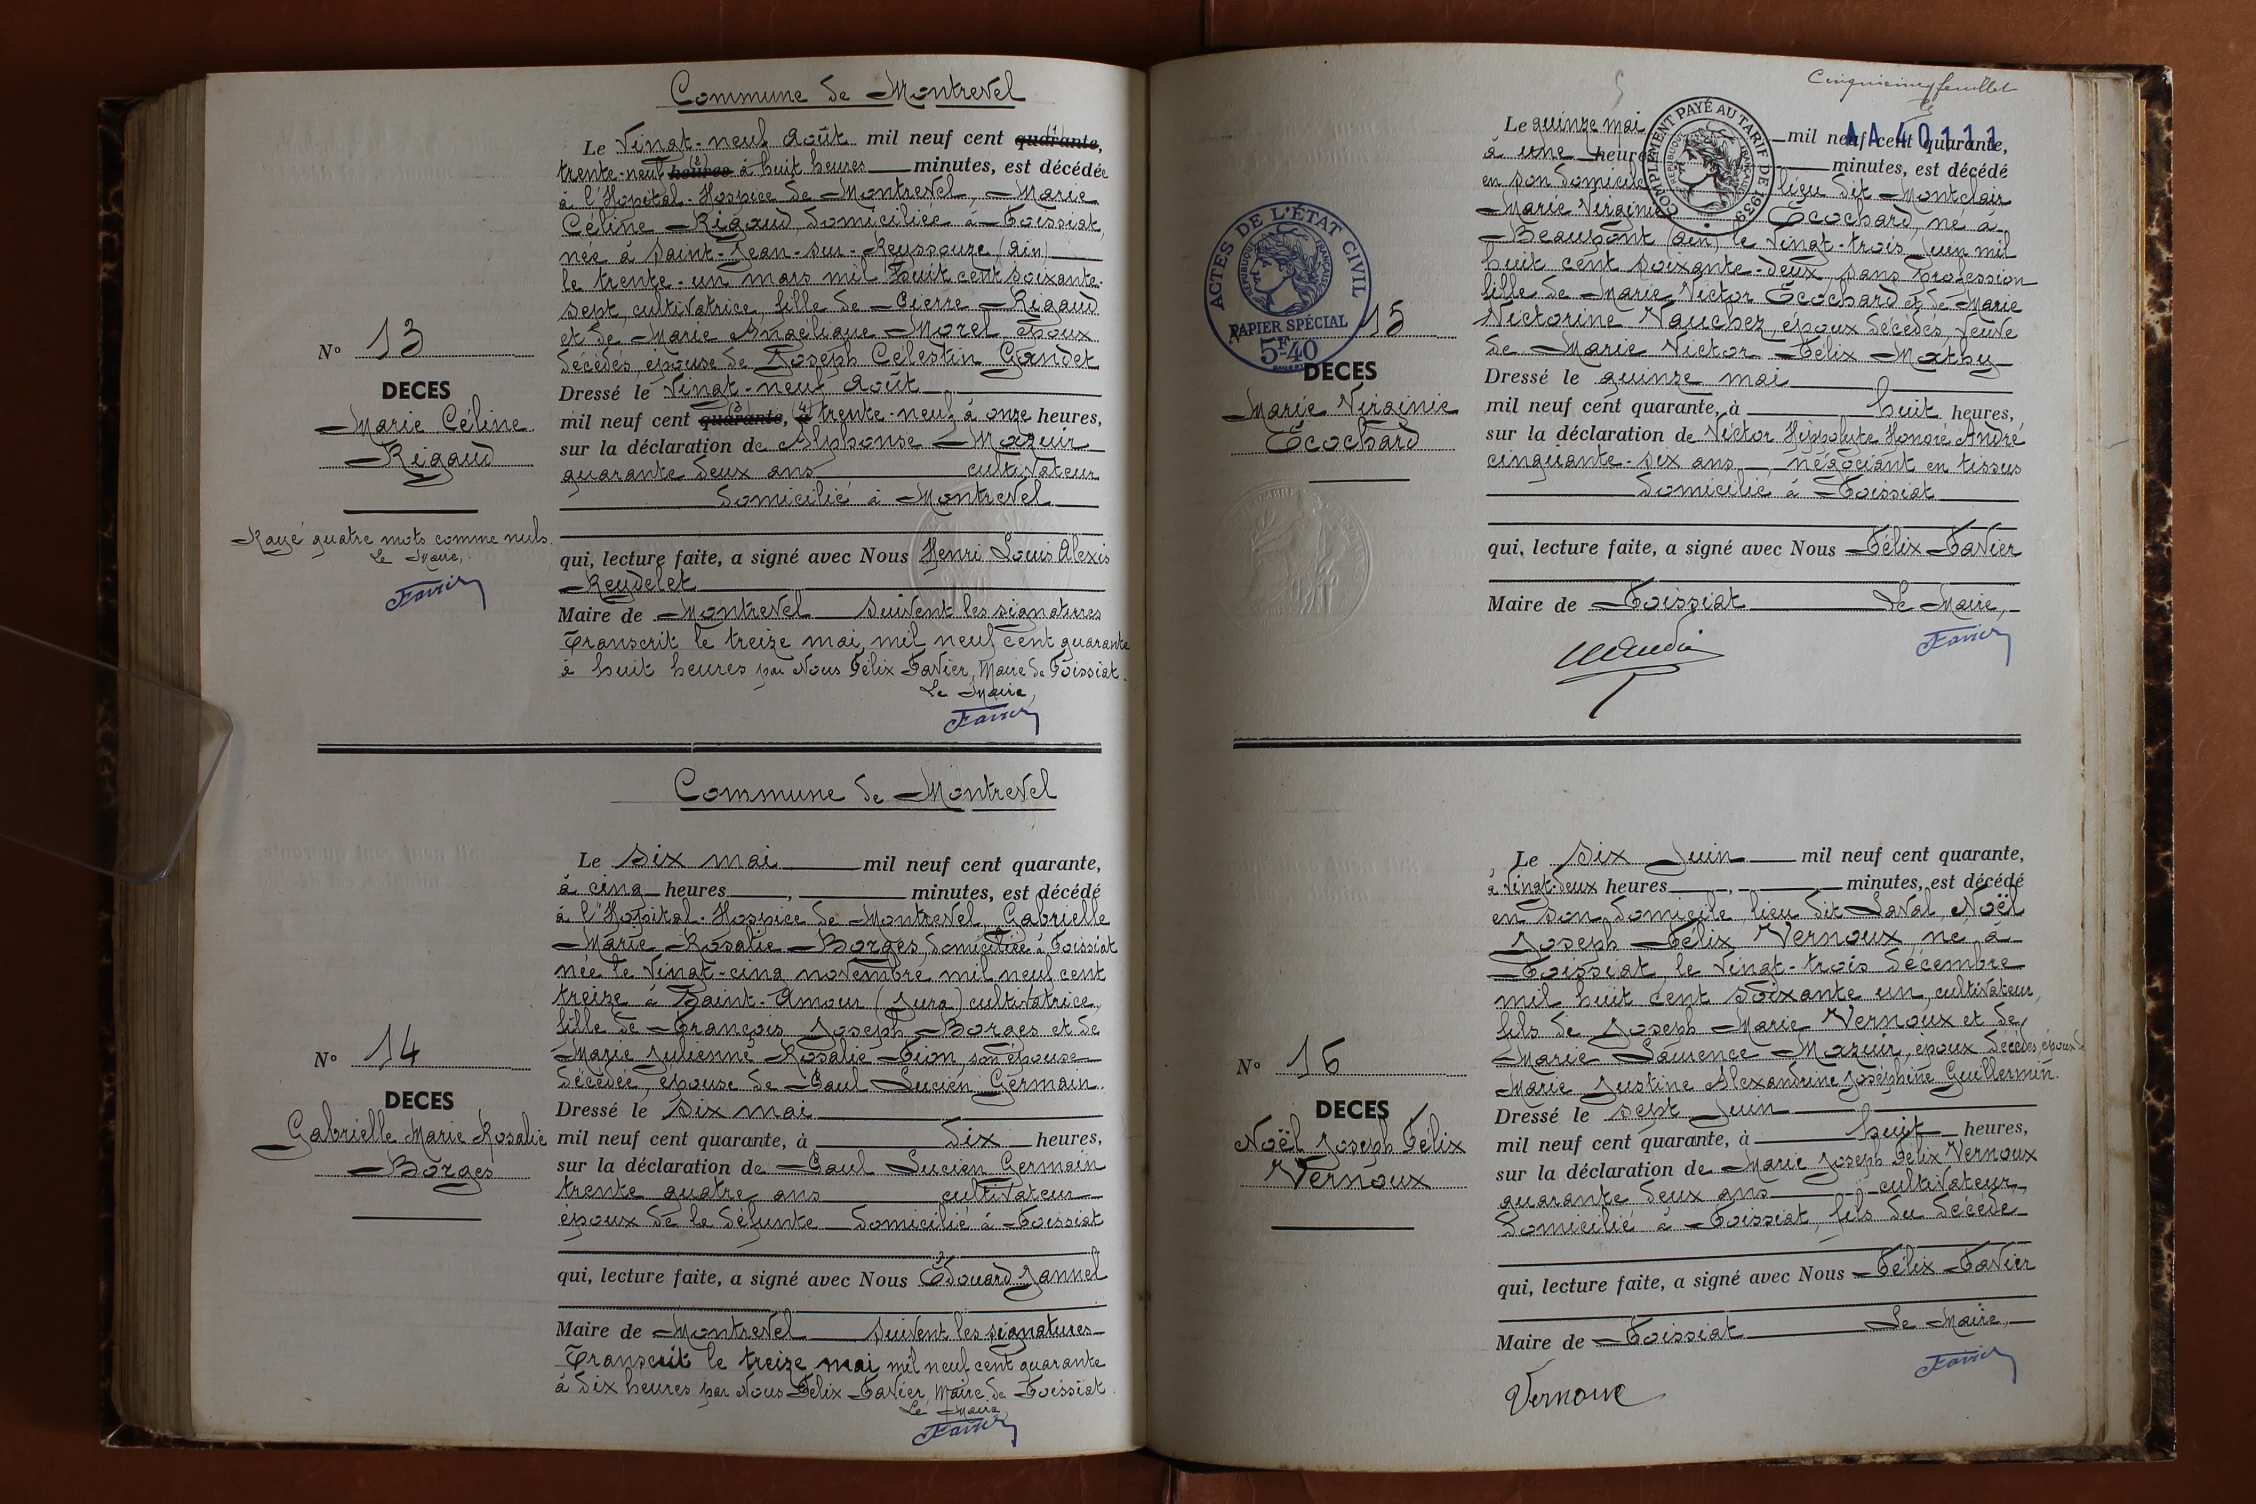 Commune de Montrevel
Le Vingt-neuf Août mil neuf cent quarante, (1)
trente-neuf heures (2) à huit heures minutes, est décédée
à l'Hôpital-Hospice de Montrevel, Marie
Céline Rigaud, domiciliée à Foissiat,
née à Saint-Jean-sur-Reyssouze (Ain)
le trente-un mars mil huit cent soixante-
sept, cultivatrice, fille de Pierre Rigaud
et de Marie Angélique Morel époux
décédés, épouse de Joseph Célestin Gandet
Dressé le Vingt-neuf Août
mil neuf cent quarante, (3) à (4) trente-neuf à onze heures,
sur la déclaration de Alphonse Mazeur
quarante deux ans cultivateur
domicilié à Montrevel
qui, lecture faite, a signé avec Nous Henri Louis Alexis
Reydelet
Maire de Montrevel suivent les signatures
Transcrit le treize mai, mil neuf cent quarante
à huit heures par Nous Félix Favier, Maire de Foissiat.
Le Maire,
Favier
N° 13
DECES
Marie Céline
Rigaud
Rayé quatre mots comme nuls.
Le Maire,
Favier
Commune de Montrevel
Le six mai mil neuf cent quarante,
à cinq heures, minutes, est décédé
à l'Hôpital-Hospice de Montrevel, Gabrielle
Marie Rosalie Borges, domiciliée à Foissiat
née le Vingt-cinq novembre mil neuf cent
treize à Saint-Amour (Jura) cultivatrice,
fille de François Joseph Borges et de
Marie Julienne Rosalie Pion, son épouse
décédée, épouse de Paul Lucien Germain.
Dressé le six mai
mil neuf cent quarante, à six heures,
sur la déclaration de Paul Lucien Germain
trente quatre ans cultivateur
époux de la défunte domicilié à Foissiat
qui, lecture faite, a signé avec Nous Édouard Jannel
Maire de Montrevel suivent les signatures
Transcrit le treize mai mil neuf cent quarante
à dix heures par Nous Félix Favier, Maire de Foissiat.
Le Maire
Favier
N° 14
DECES
Gabrielle Marie Rosalie
Borges
Cinquième feuillet
AA 40111
Le quinze mai mil neuf cent quarante,
à une heure minutes, est décédé
en son domicile lieu dit Montclair
Marie Virginie Écochard, né à
Beaupont (Ain) le Vingt-trois Juin mil
huit cent soixante-deux, sans profession
fille de Marie Victor Écochard et de Marie
Victorine Vauchez, époux décédés, Veuve
de Marie Victor Félix Mathy
Dressé le quinze mai
mil neuf cent quarante, à huit heures,
sur la déclaration de Victor Hippolyte Honoré André
cinquante-six ans, négociant en tissus
domicilié à Foissiat
qui, lecture faite, a signé avec Nous Félix Favier
Maire de Foissiat Le Maire,
Favier
COMPLEMENT PAYÉ AU TARIF DE 1939
REPUBLIQUE FRANÇAISE
ACTES DE L'ÉTAT CIVIL
REPUBLIQUE FRANÇAISE
PAPIER SPÉCIAL
5F40
15
DECES
Marie Virginie
Écochard
Le six Juin mil neuf cent quarante,
à Vingt-deux heures, minutes, est décédé
en son domicile, lieu dit Laval, Noël
Joseph Félix Vernoux, né à
Foissiat, le Vingt-trois décembre
mil huit cent soixante un, cultivateur,
fils de Joseph Marie Vernoux et de
Marie Laurence Mazuir, époux décédés, époux de
Marie Justine Alexandrine Joséphine Guillermin.
Dressé le sept Juin
mil neuf cent quarante, à huit heures,
sur la déclaration de Marie Joseph Félix Vernoux
quarante deux ans cultivateur,
domicilié à Foissiat, fils du décédé
qui, lecture faite, a signé avec Nous Félix Favier
Maire de Foissiat Le Maire,
Favier
Vernoux
N° 16
DECES
Noël Joseph Félix
Vernoux